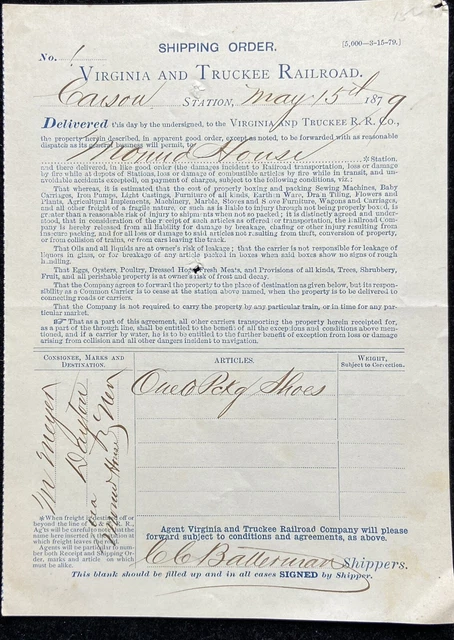 SHIPPING ORDER.
[5,000—3-15-79.]
No. 1
VIRGINIA AND TRUCKEE RAILROAD.
Carson STATION, May 15th 1879
Delivered this day by the undersigned, to the VIRGINIA AND TRUCKEE R. R. CO.,
the property herein described, in apparent good order, except as noted, to be forwarded with as reasonable
dispatch as its general business will permit, to
Mound House *Station.
and there delivered, in like good order (the damages incident to Railroad transportation, loss or damage
by fire while at depots or Stations, loss or damage of combustible articles by fire while in transit, and un-
avoidable accidents excepted), on payment of charges, subject to the following conditions, viz.:
That whereas, it is estimated that the cost of properly boxing and packing Sewing Machines, Baby
Carriages, Iron Pumps, Light Castings, Furniture of all kinds, Earthen Ware, Drain Tiling, Flowers and
Plants, Agricultural Implements, Machinery, Marble, Stoves and Stove Furniture, Wagons and Carriages,
and all other freight of a fragile nature, or such as is liable to injury through not being properly boxed, is
greater than a reasonable risk of injury to shipments when not so packed; it is distinctly agreed and under-
stood, that in consideration of the receipt of such articles as offered for transportation, the Railroad Com-
pany is hereby released from all liability for damage by breakage, chafing or other injury resulting from
insecure packing, and for all loss or damage to said articles not resulting from theft, conversion of property,
or from collision of trains, or from cars leaving the track.
That Oils and all liquids are at owner's risk of leakage; that the carrier is not responsible for leakage of
liquors in glass, or for breakage of any article packed in boxes when said boxes show no signs of rough
handling.
That Eggs, Oysters, Poultry, Dressed Hogs, Fresh Meats, and Provisions of all kinds, Trees, Shrubbery,
Fruit, and all perishable property is at owner's risk of frost and decay.
That the Company agrees to forward the property to the place of destination as given below, but its respon-
sibility as a Common Carrier is to cease at the station above named, when the property is to be delivered to
connecting roads or carriers.
That the Company is not required to carry the property by any particular train, or in time for any par-
ticular market.
☞ That as a part of this agreement, all other carriers transporting the property herein receipted for,
as a part of the through line, shall be entitled to the benefit of all the exceptions and conditions above men-
tioned, and if a carrier by water, he is to be entitled to the further benefit of exception from loss or damage
arising from collision and all other dangers incident to navigation.
CONSIGNEE, MARKS AND
DESTINATION.
ARTICLES.
WEIGHT,
Subject to Correction.
One Pckg Shoes
Dayton
via
Mound House
Nev
*When freight is destined off or
beyond the line of V. & T. R. R.,
Ag'ts will be careful to note that the
name here inserted is the station at
which freight leaves the road.
Agents will be particular to num-
ber both Receipt and Shipping Or-
der. marks and article on which
must be alike.
Agent Virginia and Truckee Railroad Company will please
forward subject to conditions and agreements, as above.
C C Batterman Shippers.
This blank should be filled up and in all cases SIGNED by Shipper.